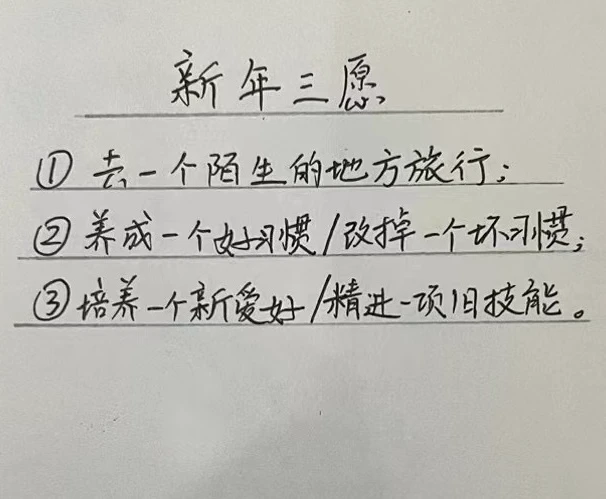 新年三愿
① 去一个陌生的地方旅行；
② 养成一个好习惯/改掉一个坏习惯；
③ 培养一个新爱好/精进一项旧技能。